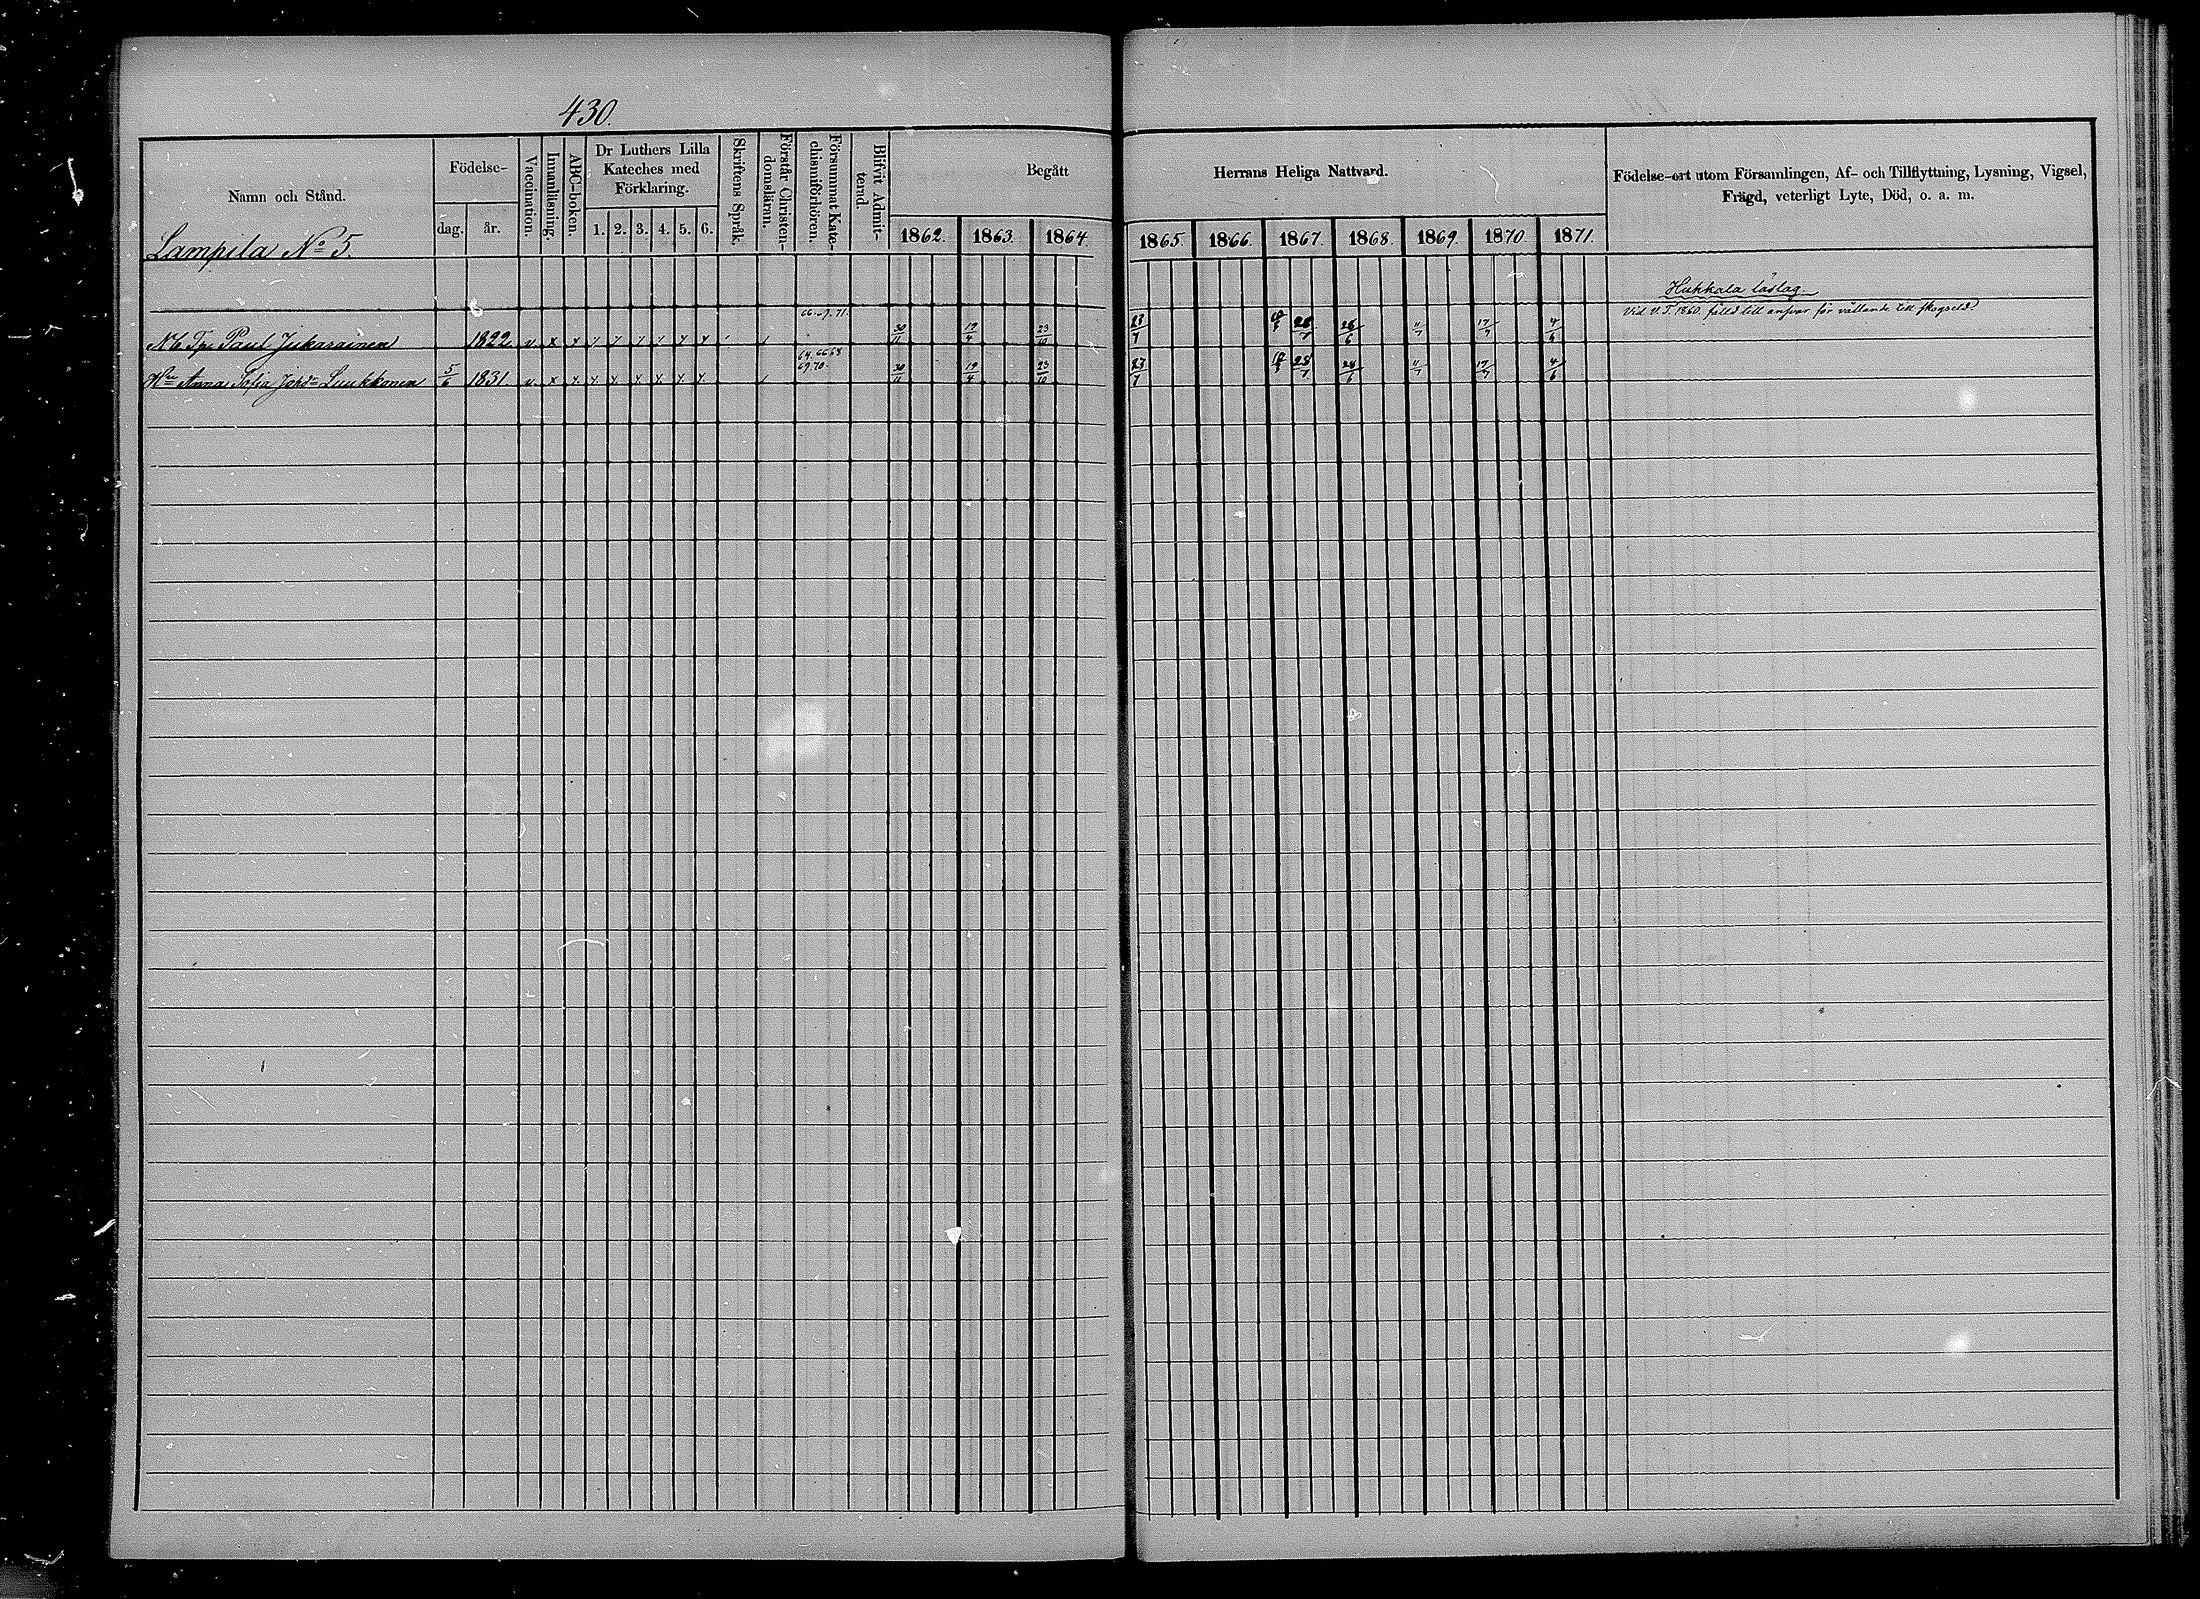 430.
Namn och Stånd.
Födelse-
dag.
år.
Vaccination.
Innanläsning.
ABC-boken.
Dr Luthers Lilla
Kateches med
Förklaring.
1. 2. 3. 4. 5. 6.
Skriftens Språk.
Förstår Christen-
domsläran.
Försummat Kate-
chismiförhören.
Blifvit Admit-
terad.
Begått
1862. 1863. 1864.
Herrans Heliga Nattvard.
1865. 1866. 1867. 1868. 1869. 1870. 1871.
Födelse-ort utom Församlingen, Af- och Tillflyttning, Lysning, Vigsel,
Frägd, veterligt Lyte, Död, o. a. m.
Lampila No 5.
Hukkala läslag.
Vid V. T. 1860. fälld till ansvar för vållande till skogseld.
Paul Jukarainen 1822 v. x x 30/11 19/4 23/10 23/7 26/6 11/7 17/7 4/6
64. 66 68
69. 70.
Hu Anna Sofia Jord. Luukkonen 5/6 1831. v. x x 30/11 19/4 23/10 23/7 11/7 17/7 4/6